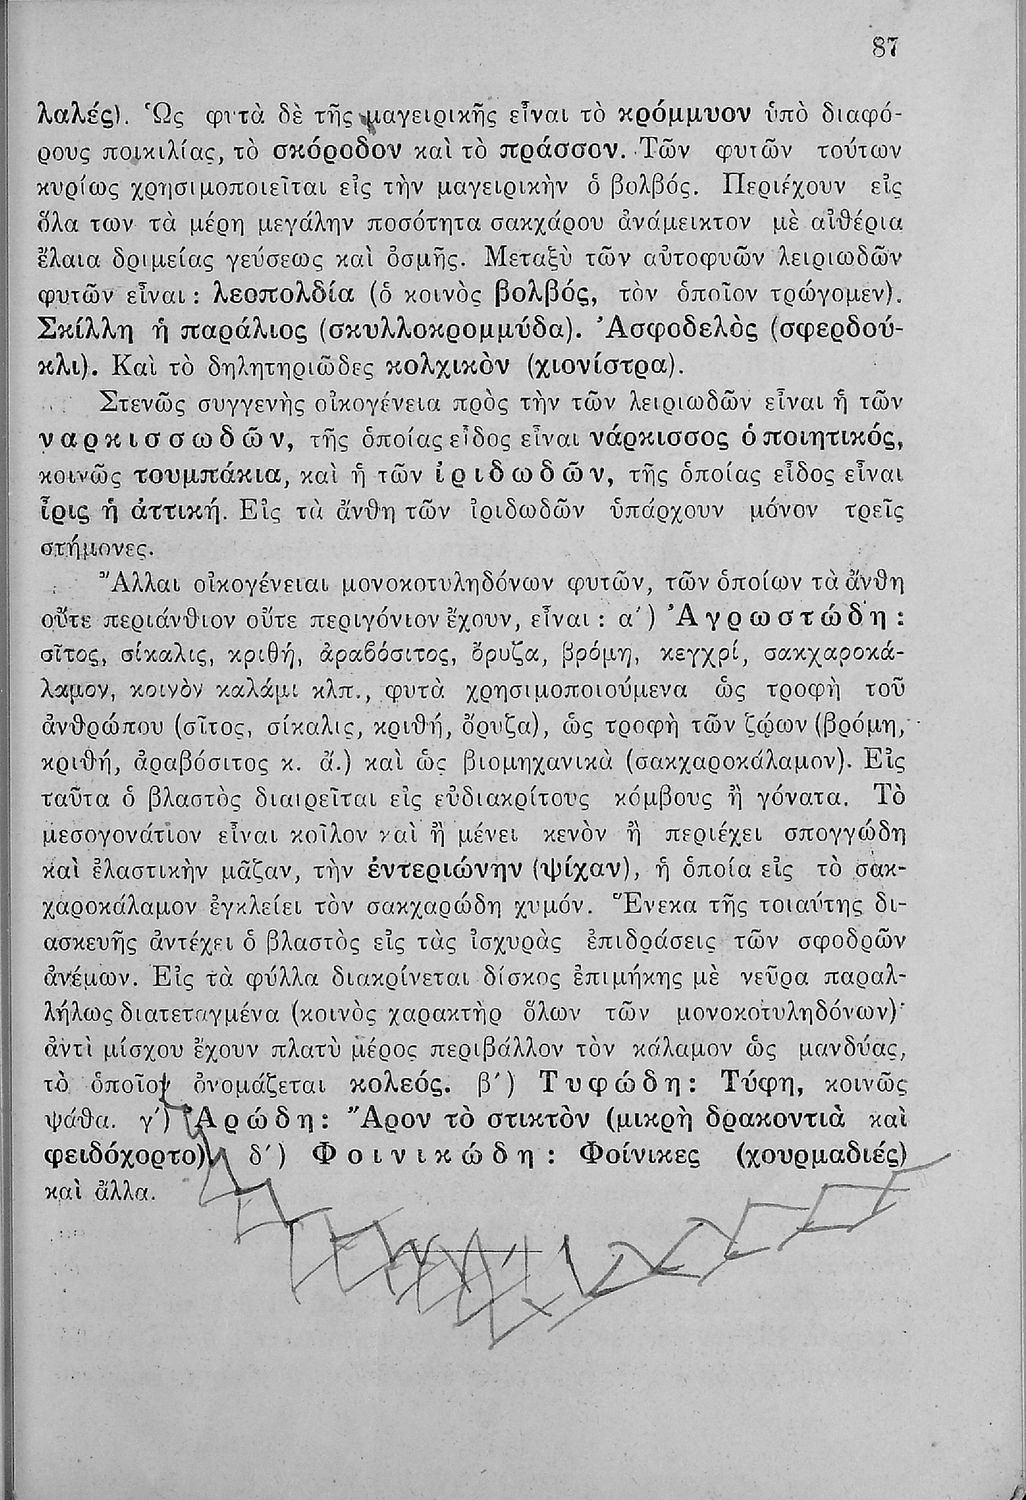 87
λαλές). Ὡς φυτὰ δὲ τῆς μαγειρικῆς εἶναι τὸ κρόμμυον ὑπὸ διαφό-
ρους ποικιλίας, τὸ σκόροδον καὶ τὸ πράσσον. Τῶν φυτῶν τούτων
κυρίως χρησιμοποιεῖται εἰς τὴν μαγειρικὴν ὁ βολβός. Περιέχουν εἰς
ὅλα των τὰ μέρη μεγάλην ποσότητα σακχάρου ἀνάμεικτον μὲ αἰθέρια
ἔλαια δριμείας γεύσεως καὶ ὀσμῆς. Μεταξὺ τῶν αὐτοφυῶν λειριωδῶν
φυτῶν εἶναι : λεοπολδία (ὁ κοινὸς βολβός, τὸν ὁποῖον τρώγομεν).
Σκίλλη ἡ παράλιος (σκυλλοκρομμύδα). Ἀσφοδελὸς (σφερδού-
κλι). Καὶ τὸ δηλητηριῶδες κολχικὸν (χιονίστρα).
Στενῶς συγγενὴς οἰκογένεια πρὸς τὴν τῶν λειριωδῶν εἶναι ἡ τῶν
ναρκισσωδῶν, τῆς ὁποίας εἶδος εἶναι νάρκισσος ὁ ποιητικός,
κοινῶς τουμπάκια, καὶ ἡ τῶν ἰριδωδῶν, τῆς ὁποίας εἶδος εἶναι
ἶρις ἡ ἀττική. Εἰς τὰ ἄνθη τῶν ἰριδωδῶν ὑπάρχουν μόνον τρεῖς
στήμονες.
Ἄλλαι οἰκογένειαι μονοκοτυληδόνων φυτῶν, τῶν ὁποίων τὰ ἄνθη
οὔτε περιάνθιον οὔτε περιγόνιον ἔχουν, εἶναι : α΄) Ἀγρωστώδη :
σῖτος, σίκαλις, κριθή, ἀραβόσιτος, ὄρυζα, βρόμη, κεγχρί, σακχαροκά-
λαμον, κοινὸν καλάμι κλπ., φυτὰ χρησιμοποιούμενα ὡς τροφὴ τοῦ
ἀνθρώπου (σῖτος, σίκαλις, κριθή, ὄρυζα), ὡς τροφὴ τῶν ζῴων (βρόμη,
κριθή, ἀραβόσιτος κ. ἄ.) καὶ ὡς βιομηχανικὰ (σακχαροκάλαμον). Εἰς
ταῦτα ὁ βλαστὸς διαιρεῖται εἰς εὐδιακρίτους κόμβους ἢ γόνατα. Τὸ
μεσογονάτιον εἶναι κοῖλον καὶ ἢ μένει κενὸν ἢ περιέχει σπογγώδη
καὶ ἐλαστικὴν μᾶζαν, τὴν ἐντεριώνην (ψίχαν), ἡ ὁποία εἰς τὸ σακ-
χαροκάλαμον ἐγκλείει τὸν σακχαρώδη χυμόν. Ἕνεκα τῆς τοιαύτης δι-
ασκευῆς ἀντέχει ὁ βλαστὸς εἰς τὰς ἰσχυρὰς ἐπιδράσεις τῶν σφοδρῶν
ἀνέμων. Εἰς τὰ φύλλα διακρίνεται δίσκος ἐπιμήκης μὲ νεῦρα παραλ-
λήλως διατεταγμένα (κοινὸς χαρακτὴρ ὅλων τῶν μονοκοτυληδόνων)·
ἀντὶ μίσχου ἔχουν πλατὺ μέρος περιβάλλον τὸν κάλαμον ὡς μανδύας,
τὸ ὁποῖον ὀνομάζεται κολεός. β΄) Τυφώδη : Τύφη, κοινῶς
ψάθα. γ΄) Ἀρώδη : Ἄρον τὸ στικτὸν (μικρὴ δρακοντιὰ καὶ
φειδόχορτο) δ΄) Φοινικώδη : Φοίνικες (χουρμαδιές)
καὶ ἄλλα.